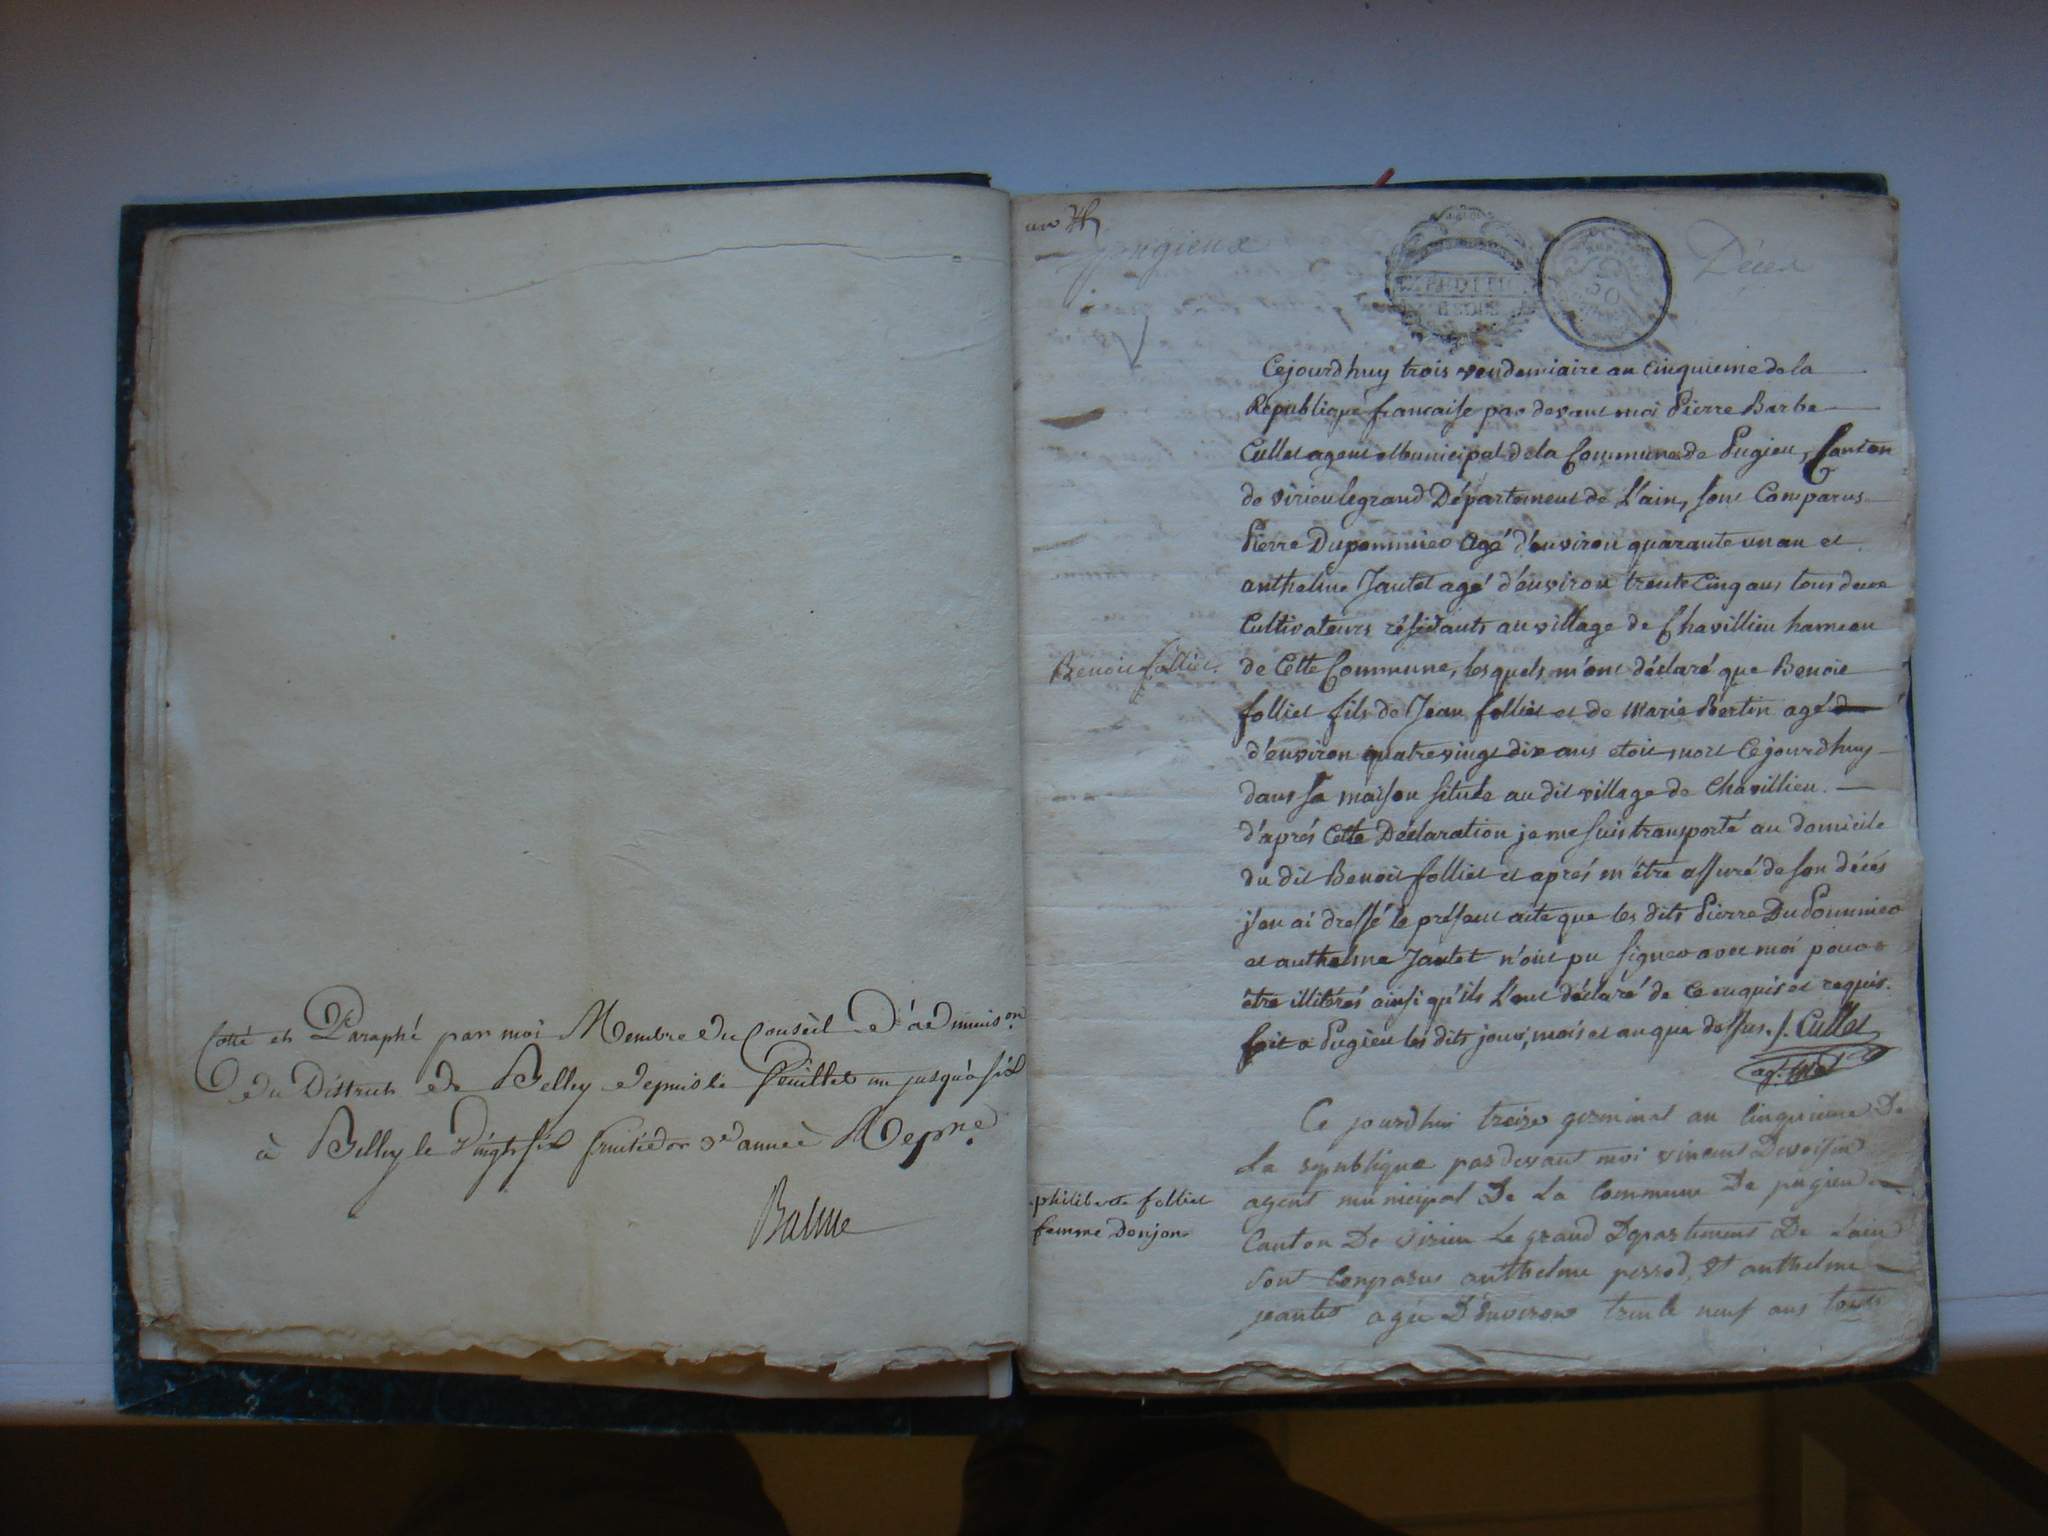 Cotté et Paraphé par moi Membre du Conseil d'adminis.on
du District de Belley depuis le feuillet un jusqu'à six
à Belley le vingt six fructidor 3e année Repne.
Balme
un
pugieux
Décés
EXPEDITION
50
Cejourdhuy trois vendemiaire an cinquieme de la
Republique francaise par devant moi Pierre Barbe
Cullet agent Municipal de la Commune de Pugieu, Canton
de virieulegrand Département de L'ain, sont Comparus
Pierre Dupommier agé d'environ quarante un an et
anthelme Jantet agé d'environ trente Cinq ans tous deux
Cultivateurs résidants au village de Chavillieu hameau
Benoit folliet.
de Cette Commune, lesquels m'ont déclaré que Benoit
folliet fils de Jean folliet et de Marie Bertin agé
d'environ quatrevingt dix ans etoit mort Cejourdhuy
dans sa maison située au dit village de Chavillieu.
d'aprés Cette Déclaration je me suis transporté au domicile
du dit Benoit folliet et aprés m'être assuré de son décés
j'en ai dressé le présent acte que les dits Pierre DuPommier
et anthelme Jantet n'ont pu signer avec moi pour
être illiterés ainsi qu'ils L'ont déclaré de ce enquis et requis.
fait a Pugieu les dits jour, mois et an que dessus. Cullet
ag.t
Ce jourdhui treize germinal an Cinquieme De
La republique par devant moi vincent Devoisin
agent municipal De La Commune De pugieu
philiberte folliet
femme Donjon
Canton De virieu Le grand Departement De Lain
sont Comparus anthelme perrod, et anthelme
jantet agée D'environ trente neuf ans tous